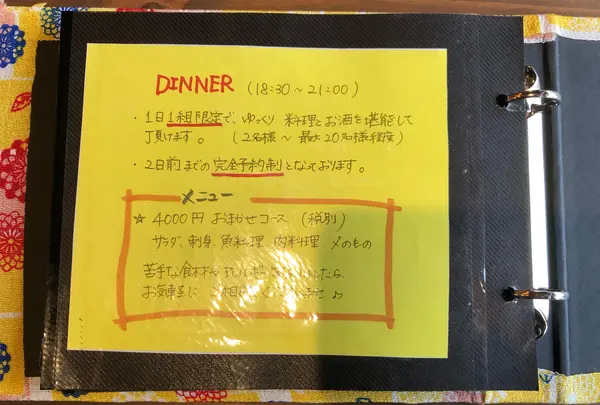 DINNER (18:30～21:00)
・1日1組限定で、ゆっくり 料理とお酒を堪能して
頂けます。 (2名様～最大20名様程度)
・2日前までの完全予約制となっております。
メニュー
☆ 4000円 おまかせコース (税別)
サラダ、刺身、魚料理、肉料理、〆のもの
苦手な食材や
お気軽に